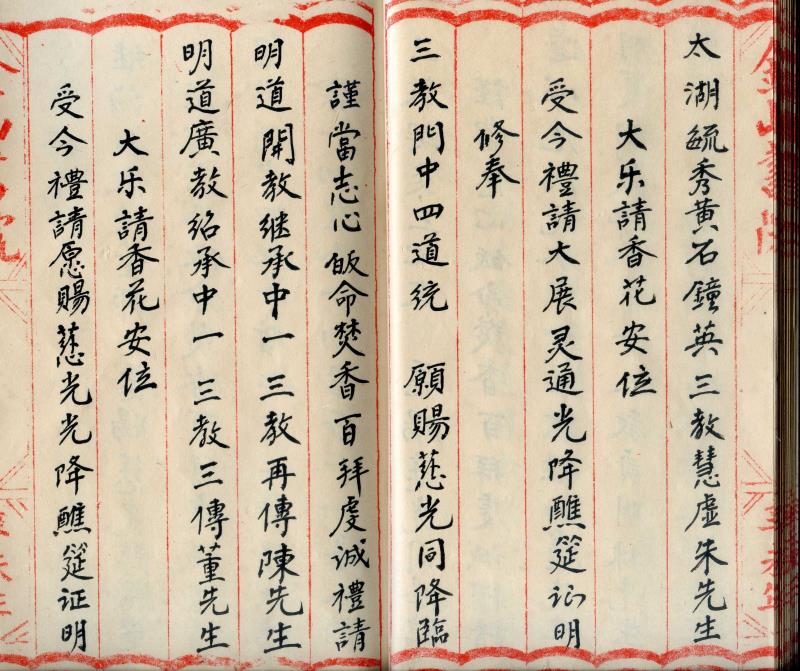 太湖毓秀黄石鐘英三教慧虚朱先生
大乐請香花安位
受今禮請大展灵通光降醮筵证明
修奉
三教門中四道统 願賜慈光同降臨
謹當志心皈命焚香百拜虔诚禮請
明道開教继承中一三教再傳陳先生
明道廣教绍承中一三教三傳董先生
大乐請香花安位
受今禮請愿賜慈光光降醮筵证明